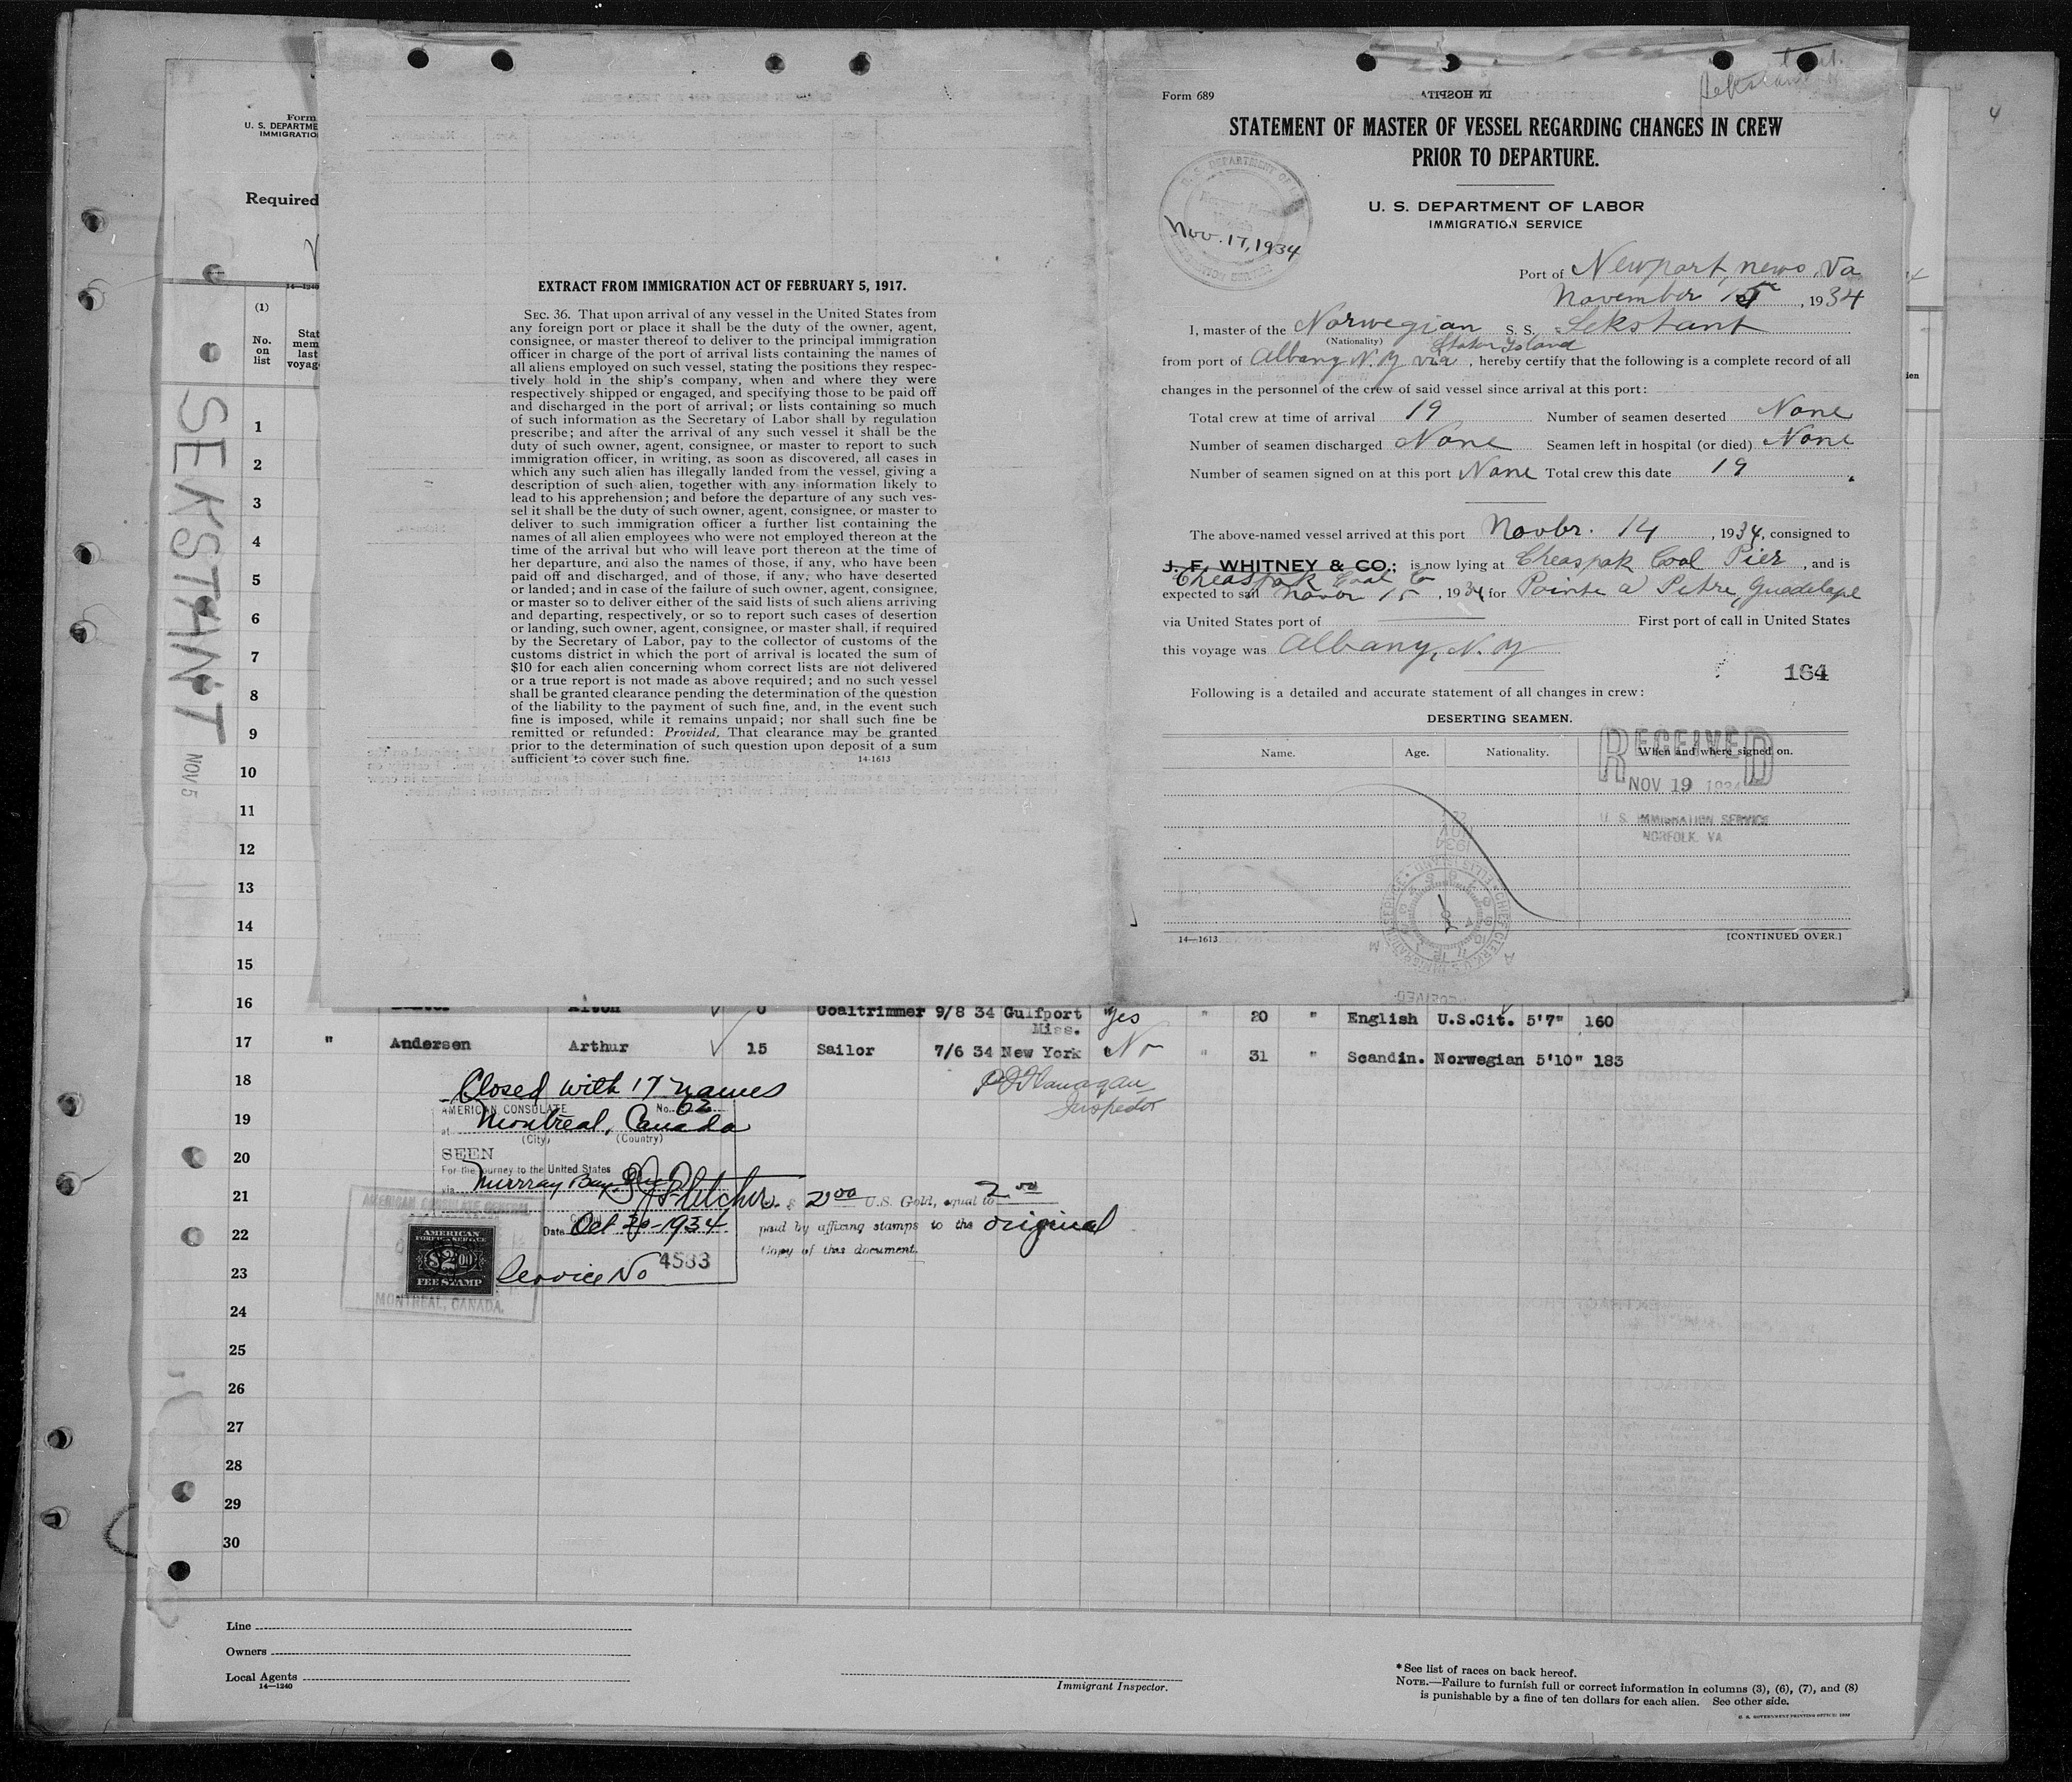 Form
U. S. DEPARTME
IMMIGRATIO
Required
14—1240
(1)
No.
on
list
Stat
mem
last
voyag
SEKSTANT
NOV 5
1
2
3
4
5
6
7
8
9
10
11
12
13
14
15
EXTRACT FROM IMMIGRATION ACT OF FEBRUARY 5, 1917.
SEC. 36. That upon arrival of any vessel in the United States from
any foreign port or place it shall be the duty of the owner, agent,
consignee, or master thereof to deliver to the principal immigration
officer in charge of the port of arrival lists containing the names of
all aliens employed on such vessel, stating the positions they respec-
tively hold in the ship's company, when and where they were
respectively shipped or engaged, and specifying those to be paid off
and discharged in the port of arrival; or lists containing so much
of such information as the Secretary of Labor shall by regulation
prescribe; and after the arrival of any such vessel it shall be the
duty of such owner, agent, consignee, or master to report to such
immigration officer, in writing, as soon as discovered, all cases in
which any such alien has illegally landed from the vessel, giving a
description of such alien, together with any information likely to
lead to his apprehension; and before the departure of any such ves-
sel it shall be the duty of such owner, agent, consignee, or master to
deliver to such immigration officer a further list containing the
names of all alien employees who were not employed thereon at the
time of the arrival but who will leave port thereon at the time of
her departure, and also the names of those, if any, who have been
paid off and discharged, and of those, if any, who have deserted
or landed; and in case of the failure of such owner, agent, consignee,
or master so to deliver either of the said lists of such aliens arriving
and departing, respectively, or so to report such cases of desertion
or landing, such owner, agent, consignee, or master shall, if required
by the Secretary of Labor, pay to the collector of customs of the
customs district in which the port of arrival is located the sum of
$10 for each alien concerning whom correct lists are not delivered
or a true report is not made as above required; and no such vessel
shall be granted clearance pending the determination of the question
of the liability to the payment of such fine, and, in the event such
fine is imposed, while it remains unpaid; nor shall such fine be
remitted or refunded: Provided, That clearance may be granted
prior to the determination of such question upon deposit of a sum
sufficient to cover such fine.
14-1613
Form 689
STATEMENT OF MASTER OF VESSEL REGARDING CHANGES IN CREW
PRIOR TO DEPARTURE.
U. S. DEPARTMENT OF LABOR
IMMIGRATION SERVICE
Nov. 17, 1934
Port of Newport news, Va
November 15, 1934
I, master of the Norwegian S. S. Sekstant
(Nationality)
Staten Island
from port of Albany N.Y via, hereby certify that the following is a complete record of all
changes in the personnel of the crew of said vessel since arrival at this port:
Total crew at time of arrival 19 Number of seamen deserted None
Number of seamen discharged None Seamen left in hospital (or died) None
Number of seamen signed on at this port None Total crew this date 19
The above-named vessel arrived at this port Novbr. 14, 1934, consigned to
J. F. WHITNEY & CO.; is now lying at Cheaspak Coal Pier, and is
Cheaspak Coal Co
expected to sail Novbr 15, 1934 for Pointe a Petre, Guadelape
via United States port of First port of call in United States
this voyage was Albany, N.Y
164
Following is a detailed and accurate statement of all changes in crew:
DESERTING SEAMEN.
Name. Age. Nationality. When and where signed on.
RECEIVED
NOV 19 1934
U. S. IMMIGRATION SERVICE
NORFOLK, VA
14—1613
[CONTINUED OVER.]
16 Alton 6 Coaltrimmer 9/8 34 Gulfport Yes " 20 " English U.S.Cit. 5'7" 160
Miss.
17 " Andersen Arthur 15 Sailor 7/6 34 New York No " 31 " Scandin. Norwegian 5'10" 183
18 Closed with 17 names
Flanagan
Inspector
AMERICAN CONSULATE No. 62
19 at Montreal, Canada
(City) (Country)
20 SEEN
For the journey to the United States
via Murray Bay
21 Fletcher $ 2.00 U.S. Gold, equal to 2.00
AMERICAN CONSULATE GENERAL
22 Date Oct 30-1934 paid by affixing stamps to the original
Copy of this document.
AMERICAN
FOREIGN SERVICE
$2.00
FEE STAMP
23 Service No 4583
MONTREAL, CANADA.
24
25
26
27
28
29
30
Line
Owners
Local Agents
14—1240
Immigrant Inspector.
*See list of races on back hereof.
NOTE.—Failure to furnish full or correct information in columns (3), (6), (7), and (8)
is punishable by a fine of ten dollars for each alien. See other side.
U. S. GOVERNMENT PRINTING OFFICE